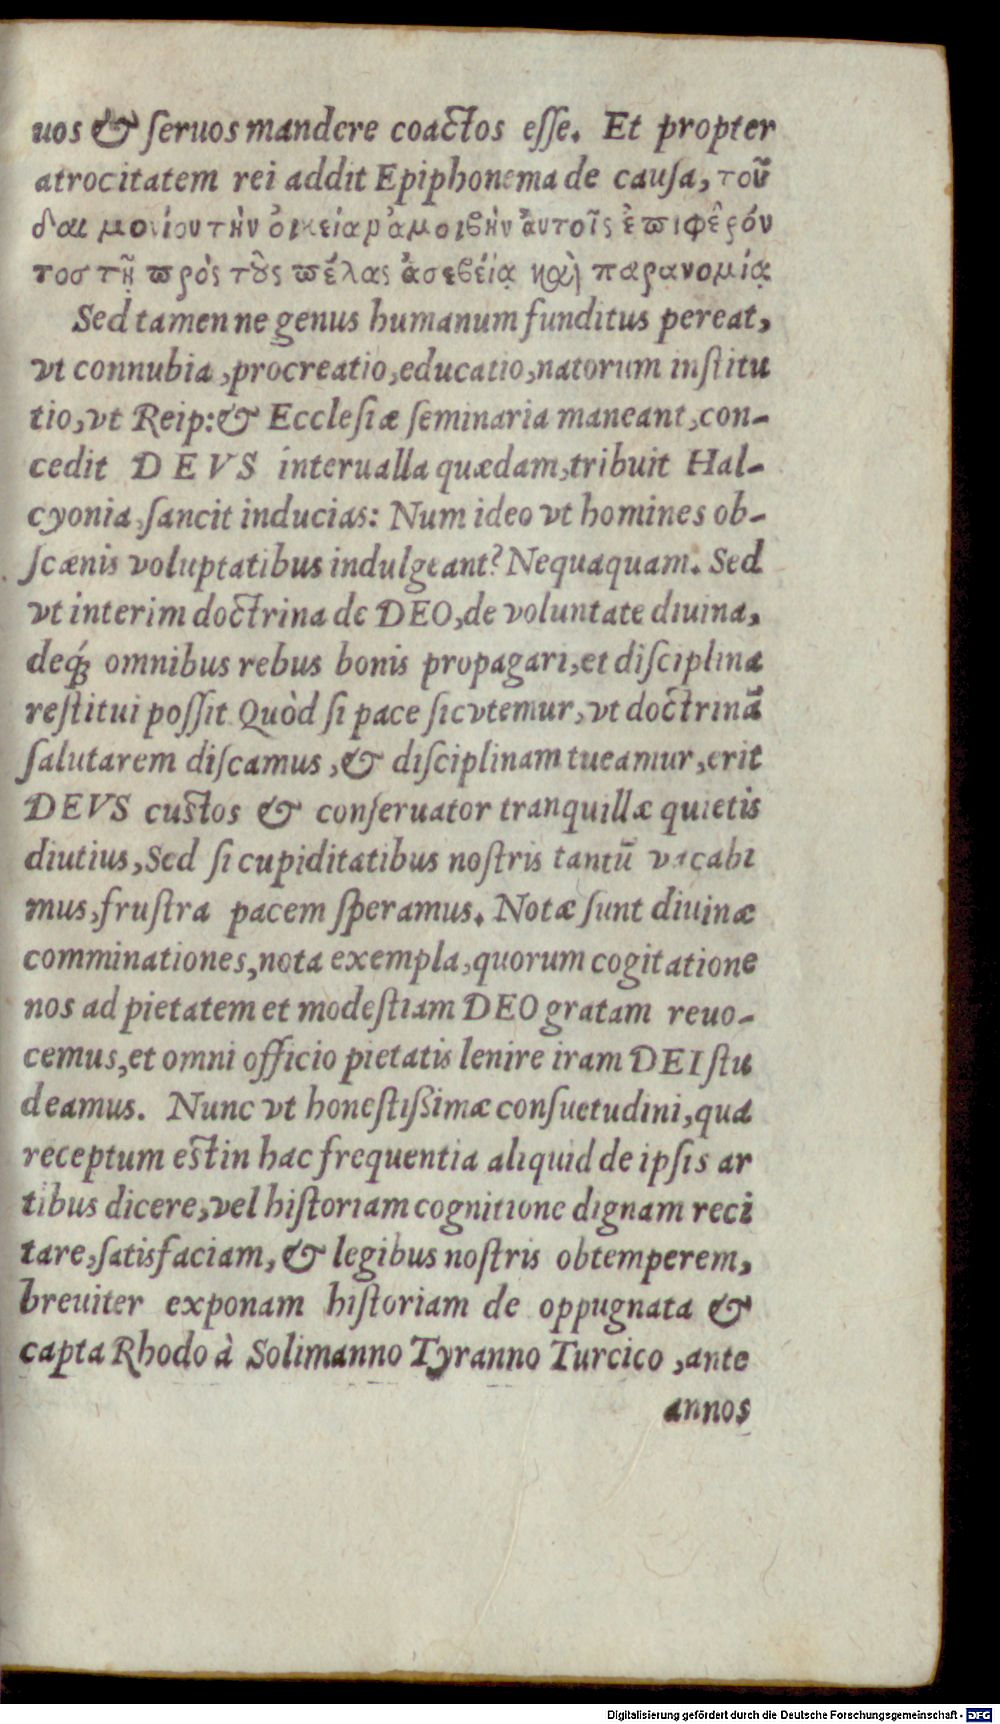 uos & ſeruos mandere coactos eſſe. Et propter
atrocitatem rei addit Epiphonema de cauſa, τοῦ
δαιμονίου τὴν ὀικείαν ἀμοιβὴν ἀυτοῖς ἐπιφερόν
τος τῇ πρὸς τοὺς πέλας ἀσεβείᾳ καὶ παρανομίᾳ
Sed tamen ne genus humanum funditus pereat,
vt connubia, procreatio, educatio, natorum inſtitu
tio, vt Reip: & Eccleſiæ ſeminaria maneant, con-
cedit DEVS interualla quædam, tribuit Hal-
cyonia, ſancit inducias: Num ideo vt homines ob-
ſcænis voluptatibus indulgeant? Nequaquam. Sed
vt interim doctrina de DEO, de voluntate diuina,
deq́; omnibus rebus bonis propagari, et diſciplina
reſtitui poſſit Quòd ſi pace ſic vtemur, vt doctrinā
ſalutarem diſcamus, & diſciplinam tueamur, erit
DEVS cuſtos & conſeruator tranquillæ quietis
diutius, Sed ſi cupiditatibus noſtris tantū vacabi
mus, fruſtra pacem ſperamus. Notæ ſunt diuinæ
comminationes, nota exempla, quorum cogitatione
nos ad pietatem et modeſtiam DEO gratam reuo-
cemus, et omni officio pietatis lenire iram DEI ſtu
deamus. Nunc vt honeſtißimæ conſuetudini, qua
receptum eſt in hac frequentia aliquid de ipſis ar
tibus dicere, vel hiſtoriam cognitione dignam reci
tare, ſatisfaciam, & legibus noſtris obtemperem,
breuiter exponam hiſtoriam de oppugnata &
capta Rhodo à Solimanno Tyranno Turcico, ante
annos
Digitalisierung gefördert durch die Deutsche Forschungsgemeinschaft - DFG